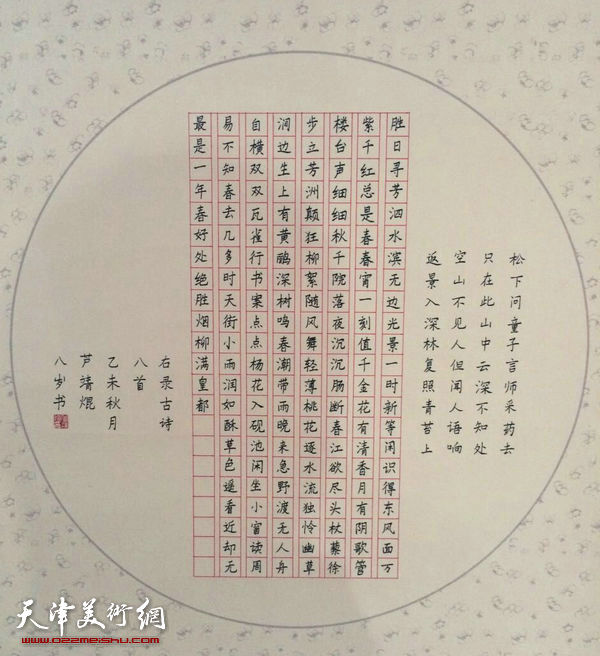 松下问童子言师采药去
只在此山中云深不知处
空山不见人但闻人语响
返景入深林复照青苔上
胜日寻芳泗水滨无边光景一时新等闲识得东风面万
紫千红总是春春宵一刻值千金花有清香月有阴歌管
楼台声细细秋千院落夜沉沉肠断春江欲尽头杖藜徐
步立芳洲颠狂柳絮随风舞轻薄桃花逐水流独怜幽草
涧边生上有黄鹂深树鸣春潮带雨晚来急野渡无人舟
自横双双瓦雀行书案点点杨花入砚池闲坐小窗读周
易不知春去几多时天街小雨润如酥草色遥看近却无
最是一年春好处绝胜烟柳满皇都
右录古诗
八首
乙未秋月
芦靖焜
八岁书
天津美術網
www.022meishu.com